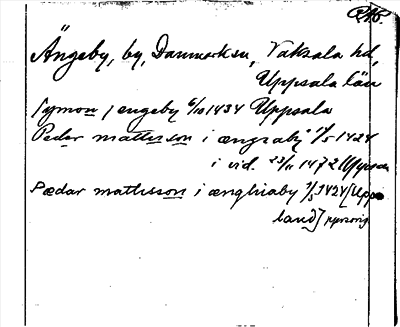 Ängeby, by, Danmarks sn, Vaksala hd,
Uppsala län
symon j ængeby 6/10 1434 Uppsala
Pedar mattisson i ængaby 1/5 1424
i vid. 23/11 1472 Uppsala
Pædar mattisson i ænghiaby 1/5 1424 [Upp-
land]